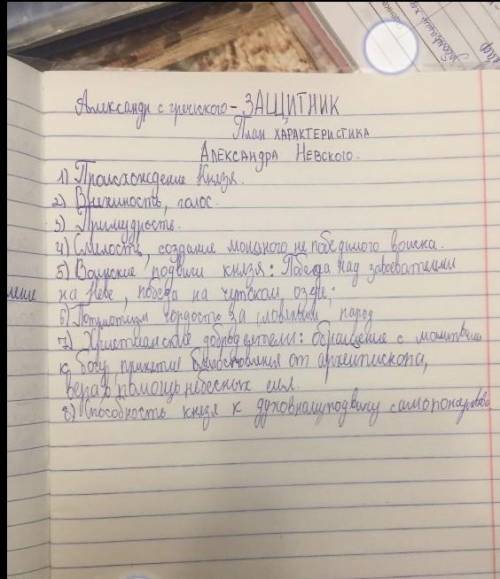 Александр с греческого - ЗАЩИТНИК
План характеристика
Александра Невского.
1) Происхождение Князя.
2) Внешность, голос.
3) Премудрость.
4) Смелость, создание мощного непобедимого войска.
5) Воинские подвиги князя: Победа над завоевателями
на Неве, победа на чутском озере;
6) Патриотизм гордость за народ
7) Христианские добродетели: обращение с молитвами
к богу принятие благословения от архиепископа,
вера в помощь небесных сил.
8) Способность князя к духовному подвигу